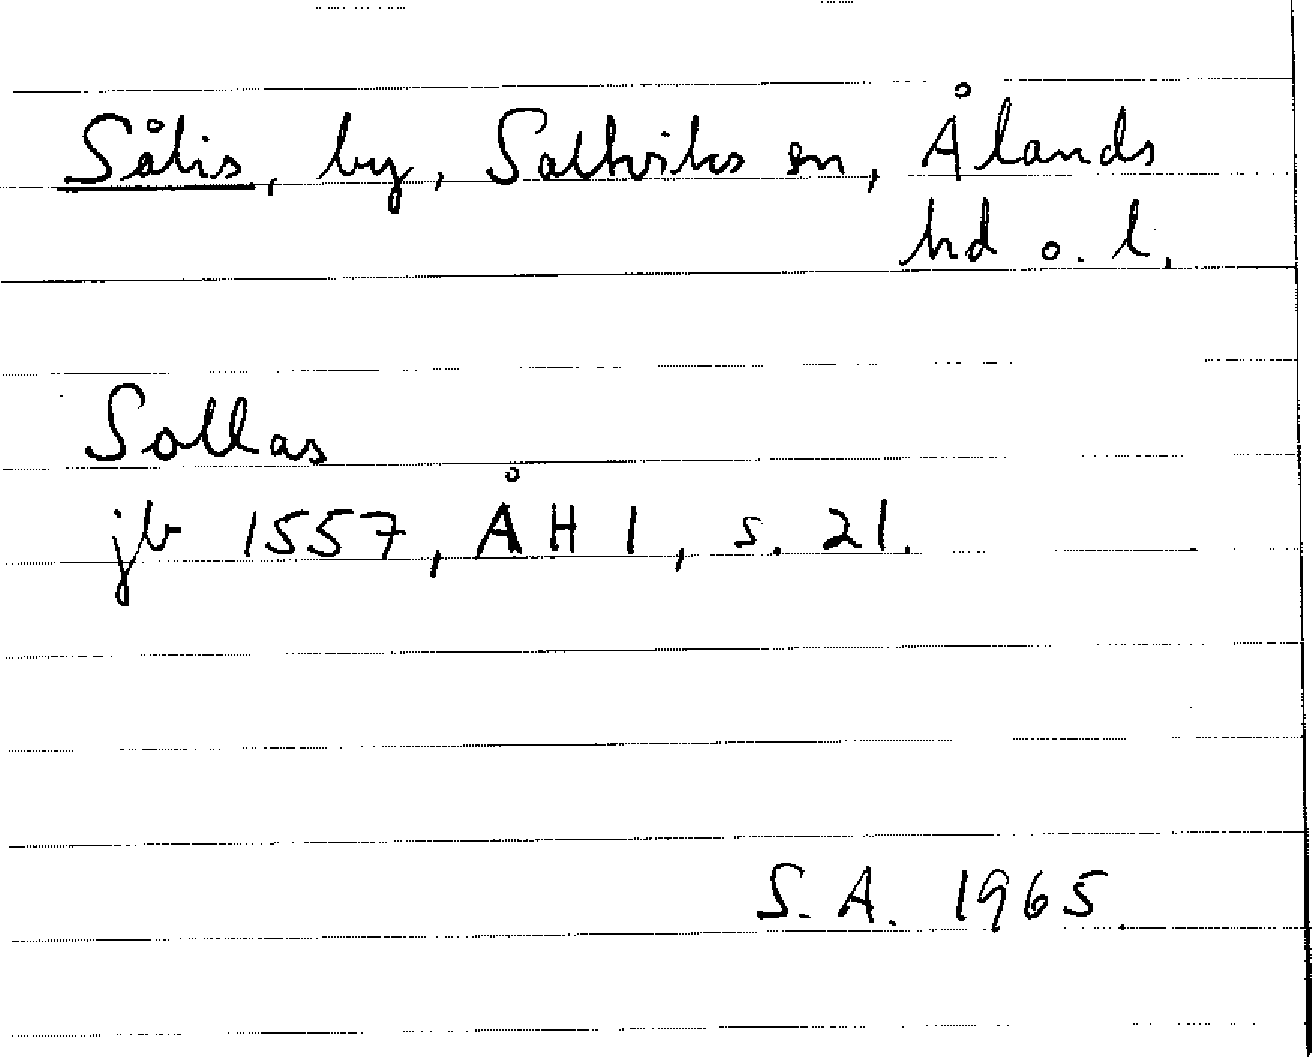 Sålis, by, Saltviks sn, Ålands
hd o. l.
Sollas
jb 1557, ÅH 1, s. 21.
S. A. 1965.